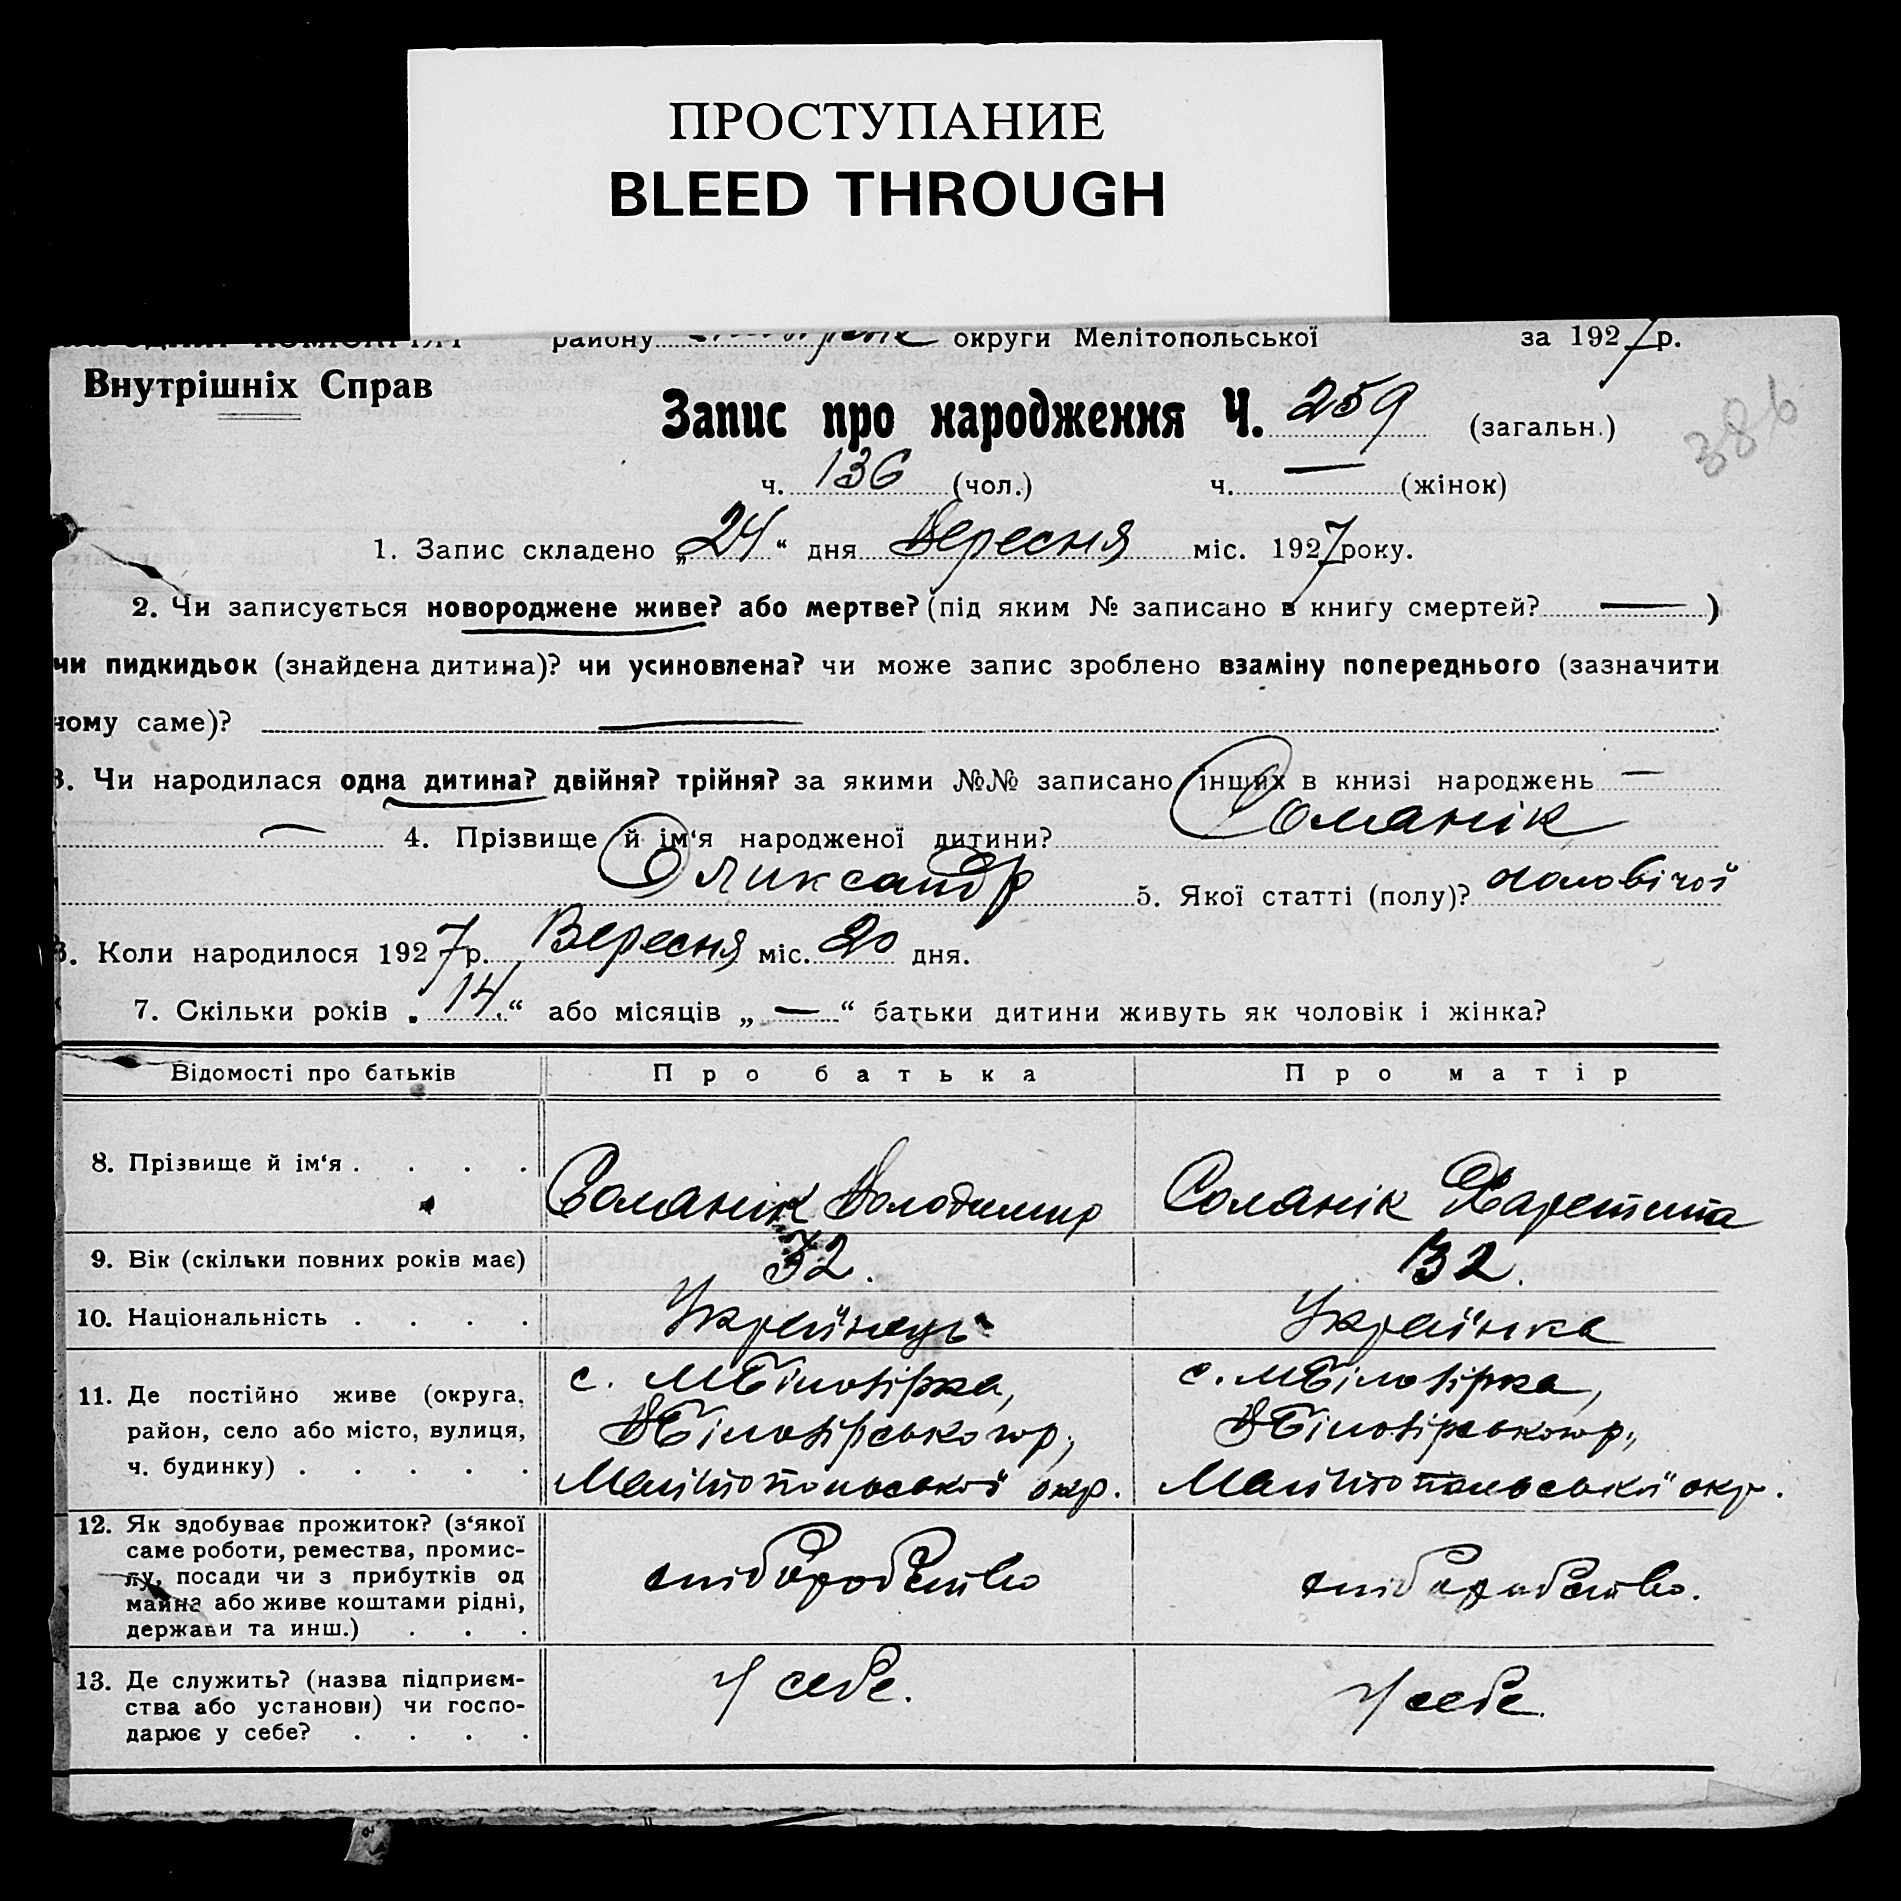 ПРОСТУПАНИЕ
BLEED THROUGH
району округи Мелітопольської за 1927 р.
Внутрішніх Справ
Запис про народження Ч. 259 (загальн.)
386
ч. 136 (чол.) ч. — (жінок)
1. Запис складено „24“ дня Вересня міс. 1927 року.
2. Чи записується новороджене живе? або мертве? (під яким № записано в книгу смертей? — )
чи пидкидьок (знайдена дитина)? чи усиновлена? чи може запис зроблено взаміну попереднього (зазначити
чому саме)? —
3. Чи народилася одна дитина? двійня? трійня? за якими №№ записано інших в книзі народжень —
— 4. Прізвище й ім‘я народженої дитини? Соманік
Олександр 5. Якої статті (полу)? чоловічої
6. Коли народилося 1927 р. Вересня міс. 20 дня.
7. Скільки років „14“ або місяців „—“ батьки дитини живуть як чоловік і жінка?
Відомості про батьків Про батька Про матір
8. Прізвище й ім‘я . . . . Соманік Володимир Соманік Харетина
9. Вік (скільки повних років має) 32. 32.
10. Національність . . . . Українець Українка
11. Де постійно живе (округа, с. МБілозірка, с. МБілозірка,
район, село або місто, вулиця, ВБілозірського р, ВБілозірського р.,
ч. будинку) . . . . . Мелітопольської окр. Мелітопольської окр.
12. Як здобуває прожиток? (з‘якої
саме роботи, ремества, промис-
лу, посади чи з прибутків од хліборобство хліборобство.
майна або живе коштами рідні,
держави та инш.) . . .
13. Де служить? (назва підприєм- У себе. У себе.
ства або установи) чи госпо-
дарює у себе? . . . .